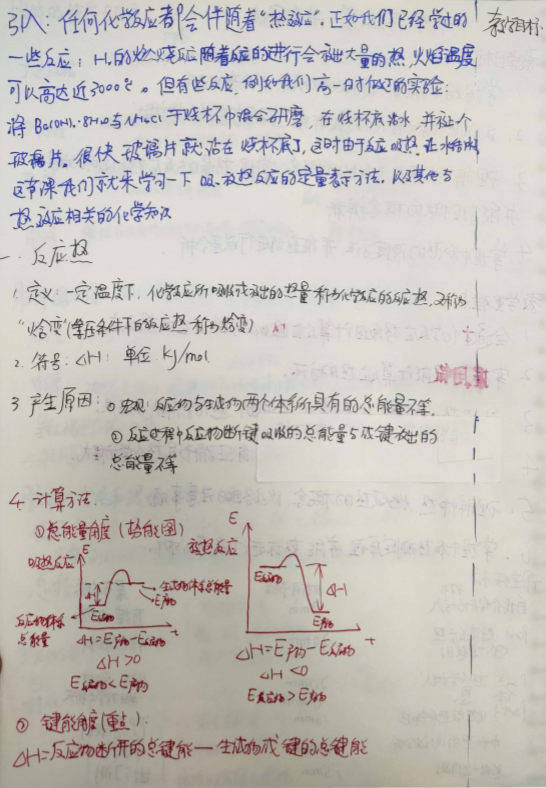 引入：任何化学反应都会伴随着“热效应”，正如我们已经学过的
教学引入
一些反应：H₂的燃烧反应随着反应的进行会放出大量的热，火焰温度
可以高达近3000℃。但有些反应，例如我们高一时做过的实验：
将Ba(OH)₂·8H₂O与NH₄Cl于烧杯中混合研磨，在烧杯底沾水，并让个
玻璃片。很快玻璃片就沾在烧杯底了，这时由于反应吸热，让水结冰
这节课我们就来学习一下吸、放热反应的定量表示方法，以及其他与
热效应相关的化学知识
一、反应热
1. 定义：一定温度下，化学反应所吸收或放出的热量称为化学反应的反应热，又称为
“焓变”(等压条件下的反应热称为焓变)
2. 符号：△H： 单位 kJ/mol
3 产生原因：① 宏观：反应物与生成物两个体系所具有的总能量不等.
② 反应过程中反应物断键吸收的总能量与成键放出的
总能量不等
4. 计算方法
①总能量角度（势能图）
吸热反应 E
放热反应 E
生成物体系总能量
E产物
△H
E反应物
反应物体系总能量
t
E反应物
△H
E产物
t
△H=E产物-E反应物
△H>0
E反应物<E产物
△H=E产物-E反应物
△H<0
E反应物>E产物
② 键能角度(重点).
△H=反应物断开的总键能—生成物成键的总键能